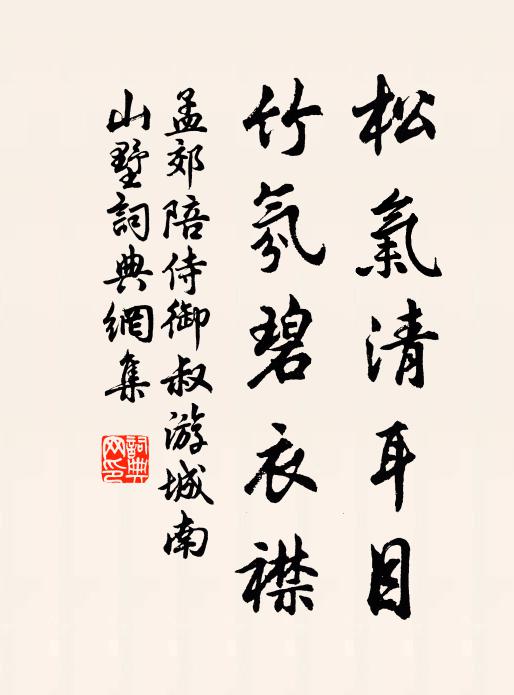 松氣清耳目
竹氛碧衣襟
孟郊陪侍御叔游城南
山墅詞典網集
詞典
网印